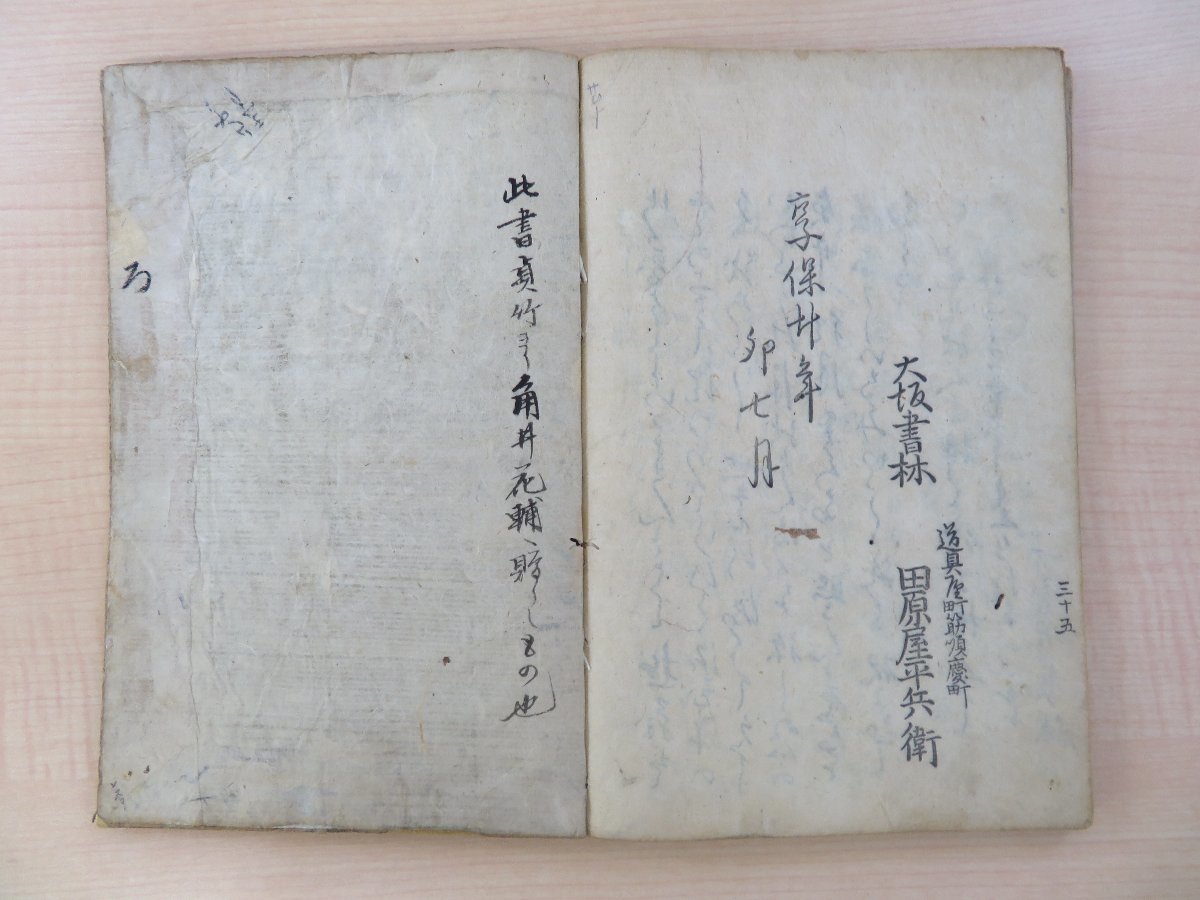 三十五
大坂書林
道具屋町筋順慶町
田原屋平兵衛
享保廿年
卯七月
此書貞竹ヨリ角井花輔へ贈らしもの也
ろ